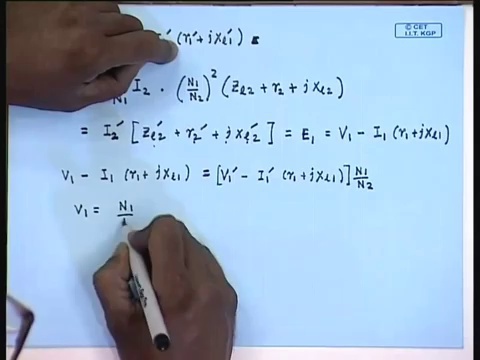 © CET
I.I.T. KGP
(r₁' + jxₗ₁') =
N₁ I₂ · (N₁/N₂)² (Zₗ₂ + r₂ + jxₗ₂)
= I₂' [Zₗ₂' + r₂' + jxₗ₂'] = E₁ = V₁ - I₁ (r₁ + jxₗ₁)
V₁ - I₁ (r₁ + jxₗ₁) = [V₁' - I₁' (r₁ + jxₗ₁)] N₁/N₂
V₁ = N₁